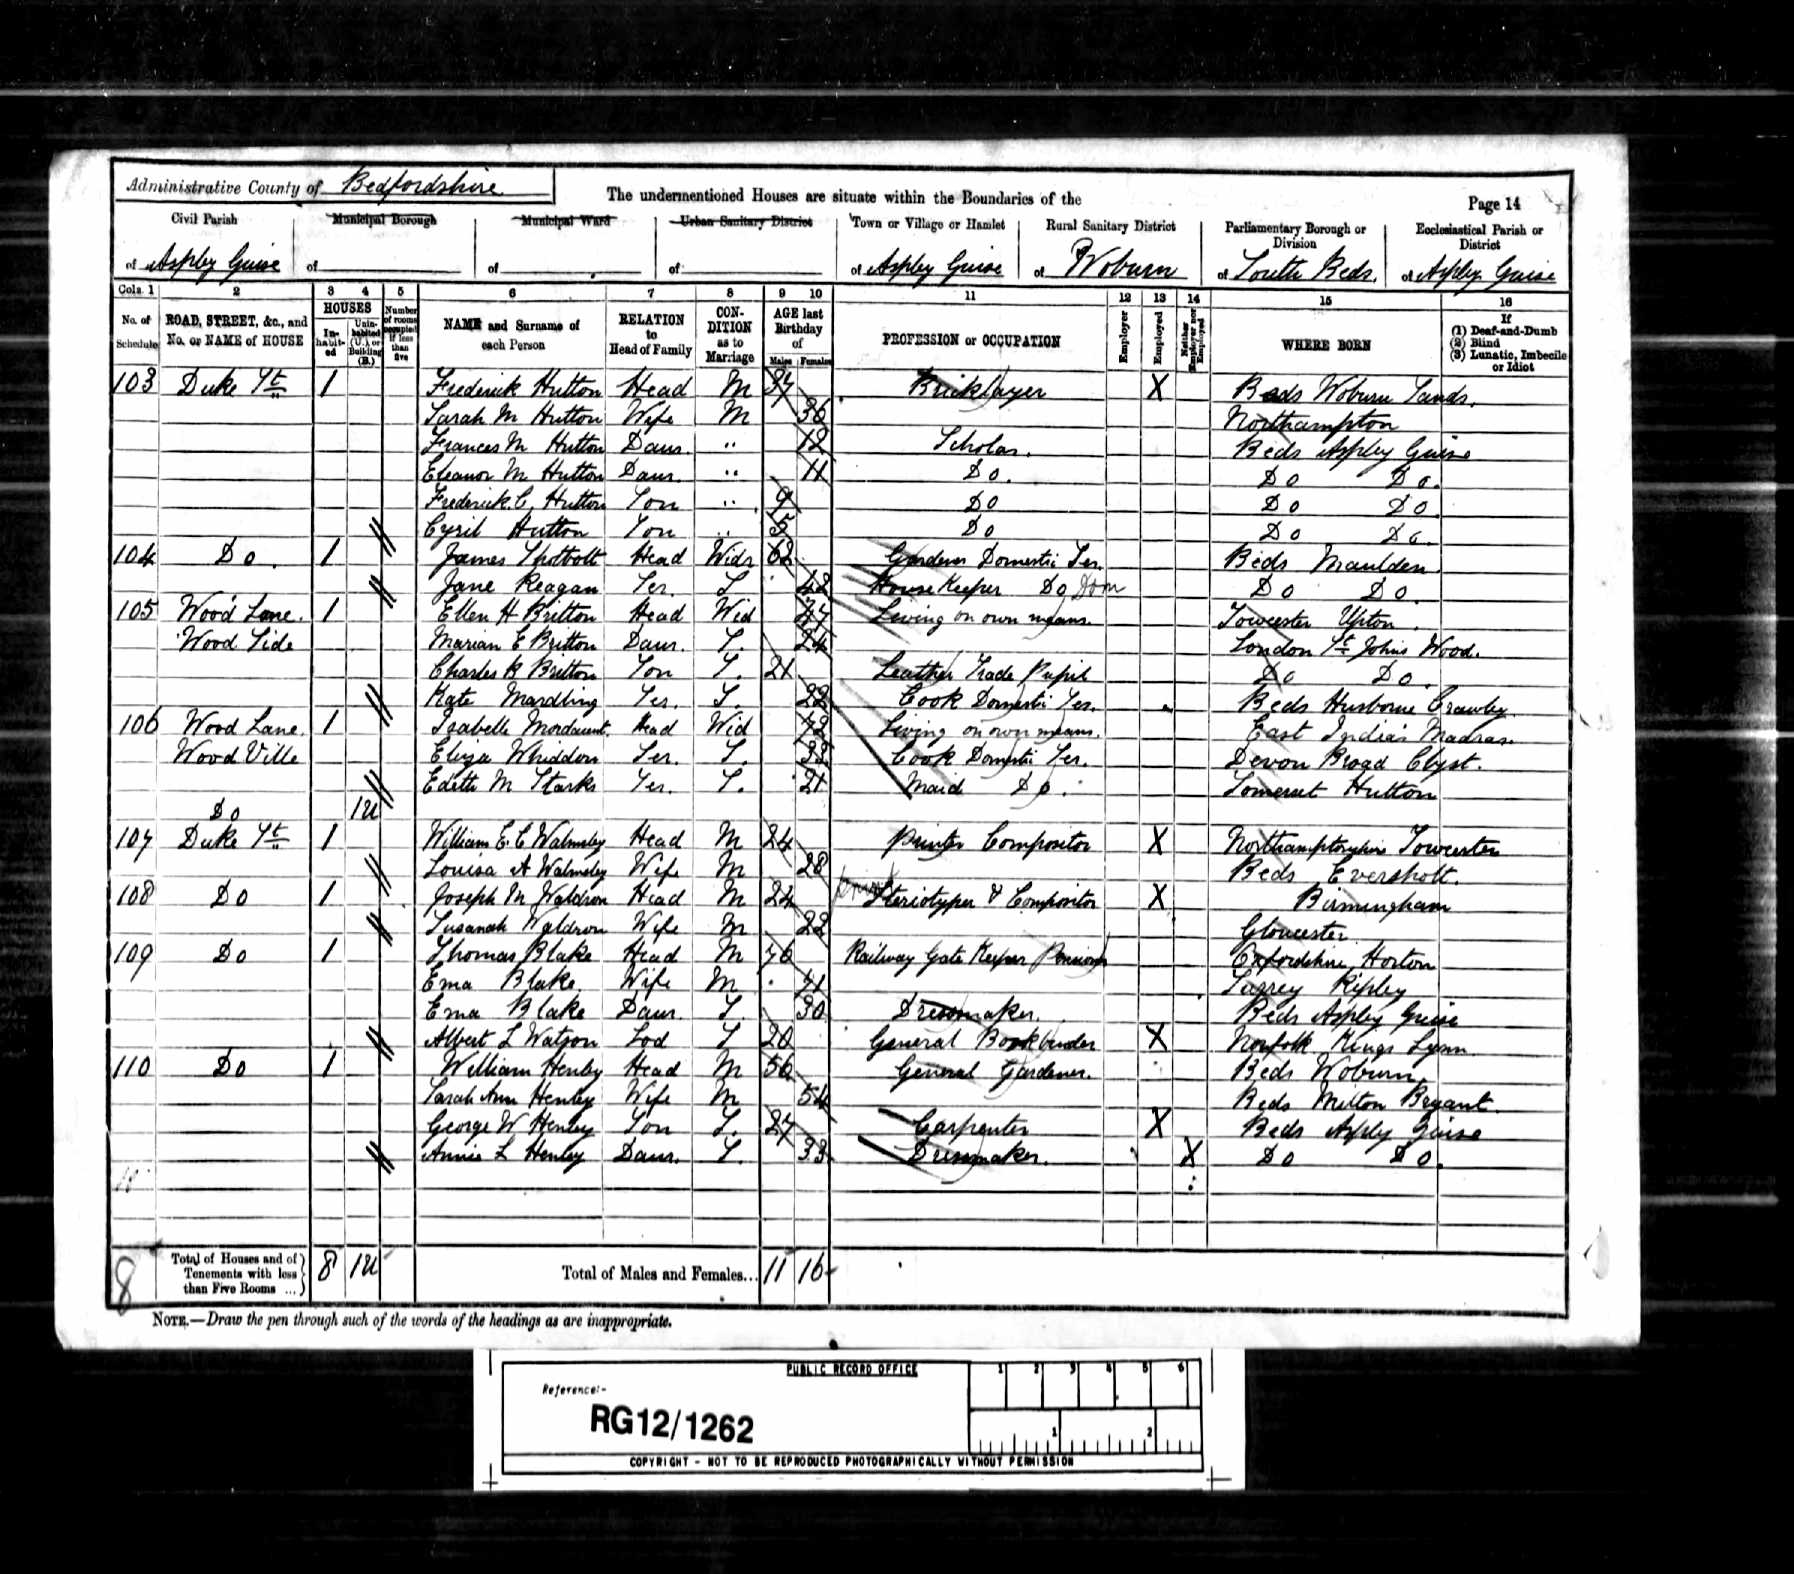 Administrative County of Bedfordshire
The undermentioned Houses are situate within the Boundaries of the
Page 14
Civil Parish Municipal Borough Municipal Ward Urban Sanitary District Town or Village or Hamlet Rural Sanitary District Parliamentary Borough or Division Ecclesiastical Parish or District
of Aspley Guise of of of of Aspley Guise of Woburn of South Beds. of Aspley Guise
Cols. 1 2 3 4 5 6 7 8 9 10 11 12 13 14 15 16
No. of Schedule ROAD, STREET, &c., and No. or NAME of HOUSE HOUSES In-habit-ed Unin-habited (U.), or Building (B.) Number of rooms occupied if less than five NAME and Surname of each Person RELATION to Head of Family CON-DITION as to Marriage AGE last Birthday of Males Females PROFESSION or OCCUPATION Employer Employed Neither Employer nor Employed WHERE BORN If (1) Deaf-and-Dumb (2) Blind (3) Lunatic, Imbecile or Idiot
103 Duke St 1 Frederick Hutton Head M 37 Bricklayer X Beds Woburn Sands.
Sarah M Hutton Wife M 36 Northampton
Frances M Hutton Daur. " 12 Scholar. Beds Aspley Guise
Eleanor M Hutton Daur. " 11 Do. Do Do.
Frederick C Hutton Son " 9 Do Do Do
Cyril Hutton Son " 5 Do Do Do.
104 Do. 1 James Head Widr 62 Gardener Domestic Ser. Beds Maulden
Jane Reagan Ser. S 42 House Keeper Do Dom Do Do.
105 Wood Lane. 1 Ellen H Britton Head Wid 47 Living on own means. Towcester Upton.
Wood Side Marian E Britton Daur. S. 24 London St Johns Wood.
Charles R Britton Son S. 21 Leather Trade Pupil Do Do.
Kate Mardling Ser. S. 22 Cook Domestic Ser. Beds Husborne Crawley.
106 Wood Lane. 1 Isabella Mordaunt. Head Wid 72 Living on own means. East India's Madras.
Wood Ville Eliza Whiddon Ser. S. 33 Cook Domestic Ser. Devon Broad Clyst.
Edith M Starks Ser. S. 21 Maid Do. Somerset Hutton
Do 1U
107 Duke St 1 William E. C Walmsley Head M 24 Printer Compositor X Northamptonshire Towcester
Louisa A Walmsley Wife M 28 Beds Eversholt.
108 Do 1 Joseph M Waldron Head M 24 Steriotyper & Compositor X Birmingham
Susanah Waldron Wife M 22 Gloucester
109 Do 1 Thomas Blake Head M 76 Railway Gate Keeper Pension Oxfordshire Horton
Ema Blake. Wife M 71 Surrey Ripley
Ema Blake Daur S. 30 Dressmaker. Beds Aspley Guise
Albert L Watson Lod S 20 General Bookbinder X Norfolk Kings Lynn
110 Do 1 William Henley Head M 56 General Gardener. Beds Woburn.
Sarah Ann Henley Wife M 54 Beds Milton Bryant.
George W Henley Son S. 27 Carpenter X Beds Aspley Guise
Annie L Henley Daur. S. 33 Dressmaker. X Do Do.
8 Total of Houses and of Tenements with less than Five Rooms ... 8 1U Total of Males and Females... 11 16
NOTE.—Draw the pen through such of the words of the headings as are inappropriate.
PUBLIC RECORD OFFICE
1 2 3 4 5 6
Reference:-
RG12/1262
1 2
COPYRIGHT - NOT TO BE REPRODUCED PHOTOGRAPHICALLY WITHOUT PERMISSION